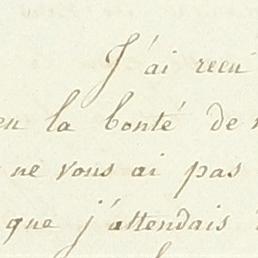 J'ai reçu
en la bonté de
ne vous ai pas
que j'attendais